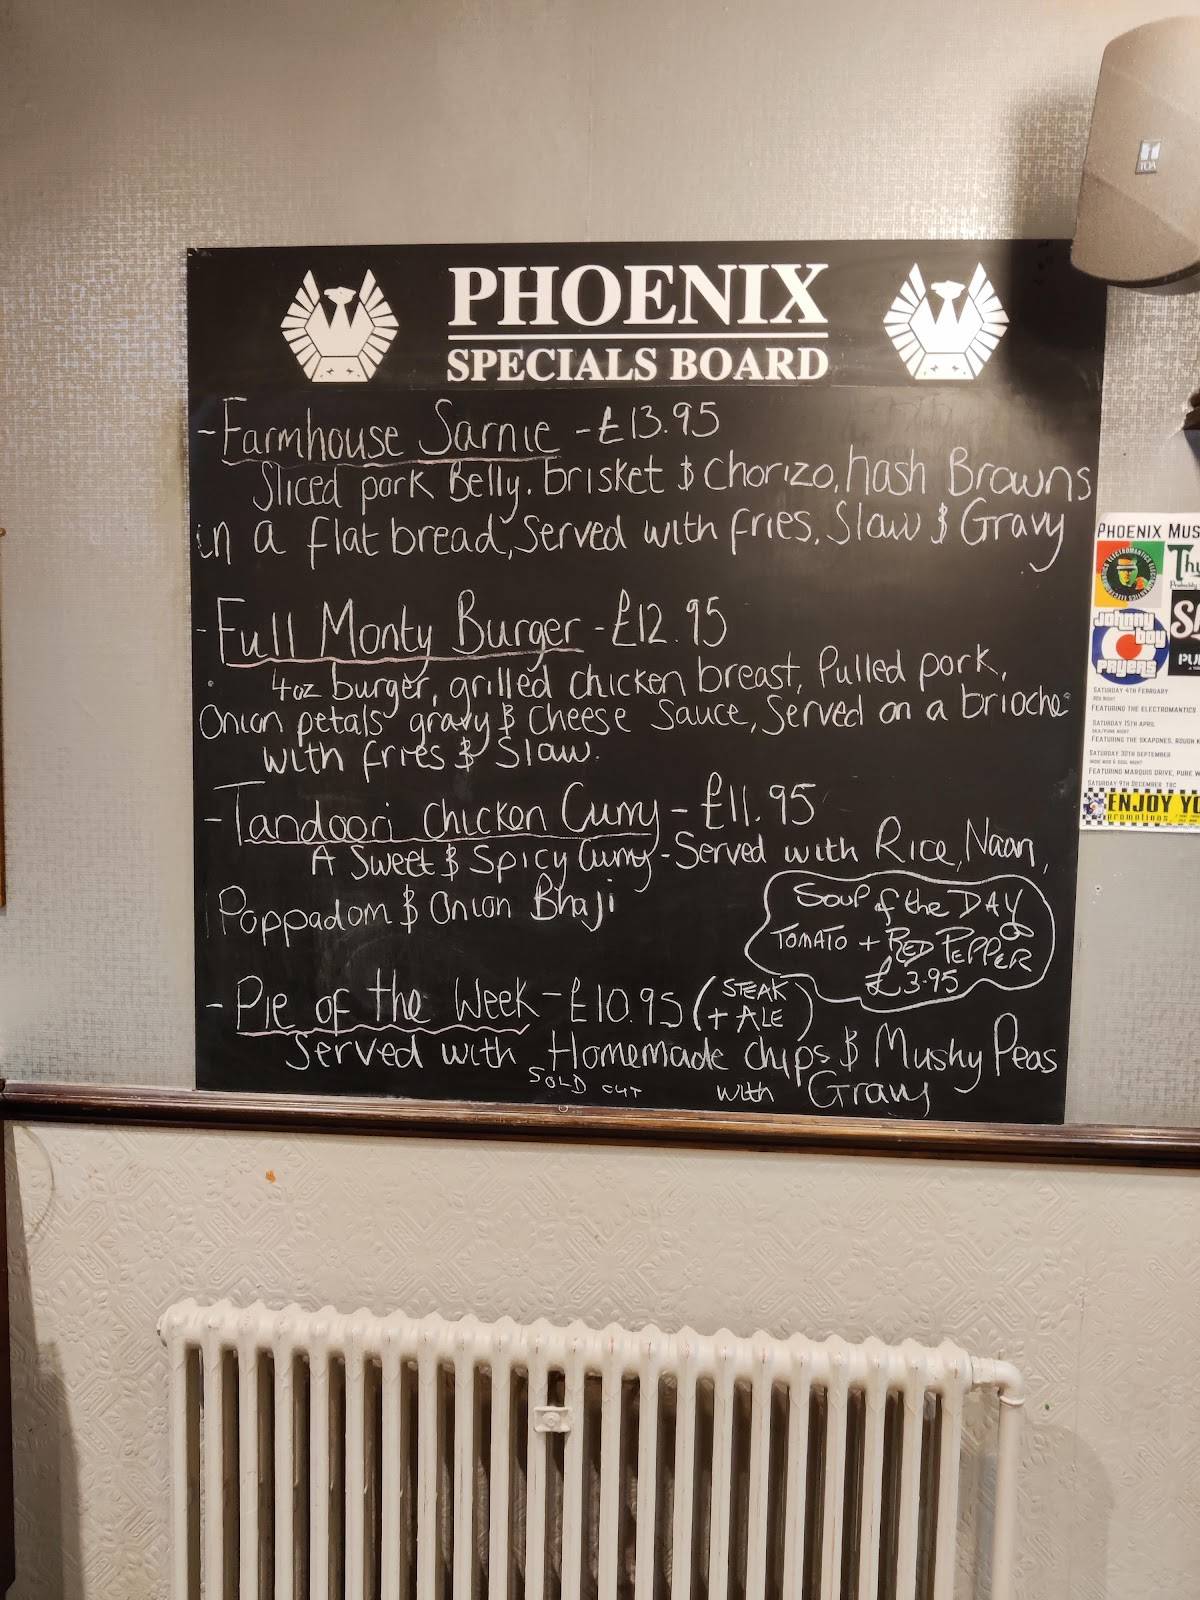 PHOENIX
SPECIALS BOARD
- Farmhouse Sarnie - £13.95
Sliced pork Belly. brisket & Chorizo, hash Browns
in a flat bread, Served with fries, Slaw & Gravy
- Full Monty Burger - £12.95
4oz burger, grilled chicken breast, Pulled pork,
Onion petals gravy & Cheese Sauce, Served on a brioche
with fries & Slaw.
- Tandoori chicken Curry - £11.95
A Sweet & Spicy Curry - Served with Rice, Naan,
Poppadom & Onion Bhaji
Soup of the DAY
TOMATO + RED PEPPER
£3.95
- Pie of the Week - £10.95 (STEAK
+ ALE)
Served with Homemade chips & Mushy Peas
SOLD OUT with Gravy
TOA
PHOENIX MUS
ELECTROMANTICS
Johnny
boy
PRYERS
PU
SATURDAY 4TH FEBRUARY
FEATURING THE ELECTROMANTICS
SATURDAY 15TH APRIL
FEATURING THE SKAPONES, ROUGH K
SATURDAY 30TH SEPTEMBER
FEATURING MARQUIS DRIVE, PURE W
SATURDAY 9TH DECEMBER TBC
ENJOY YO
promotions